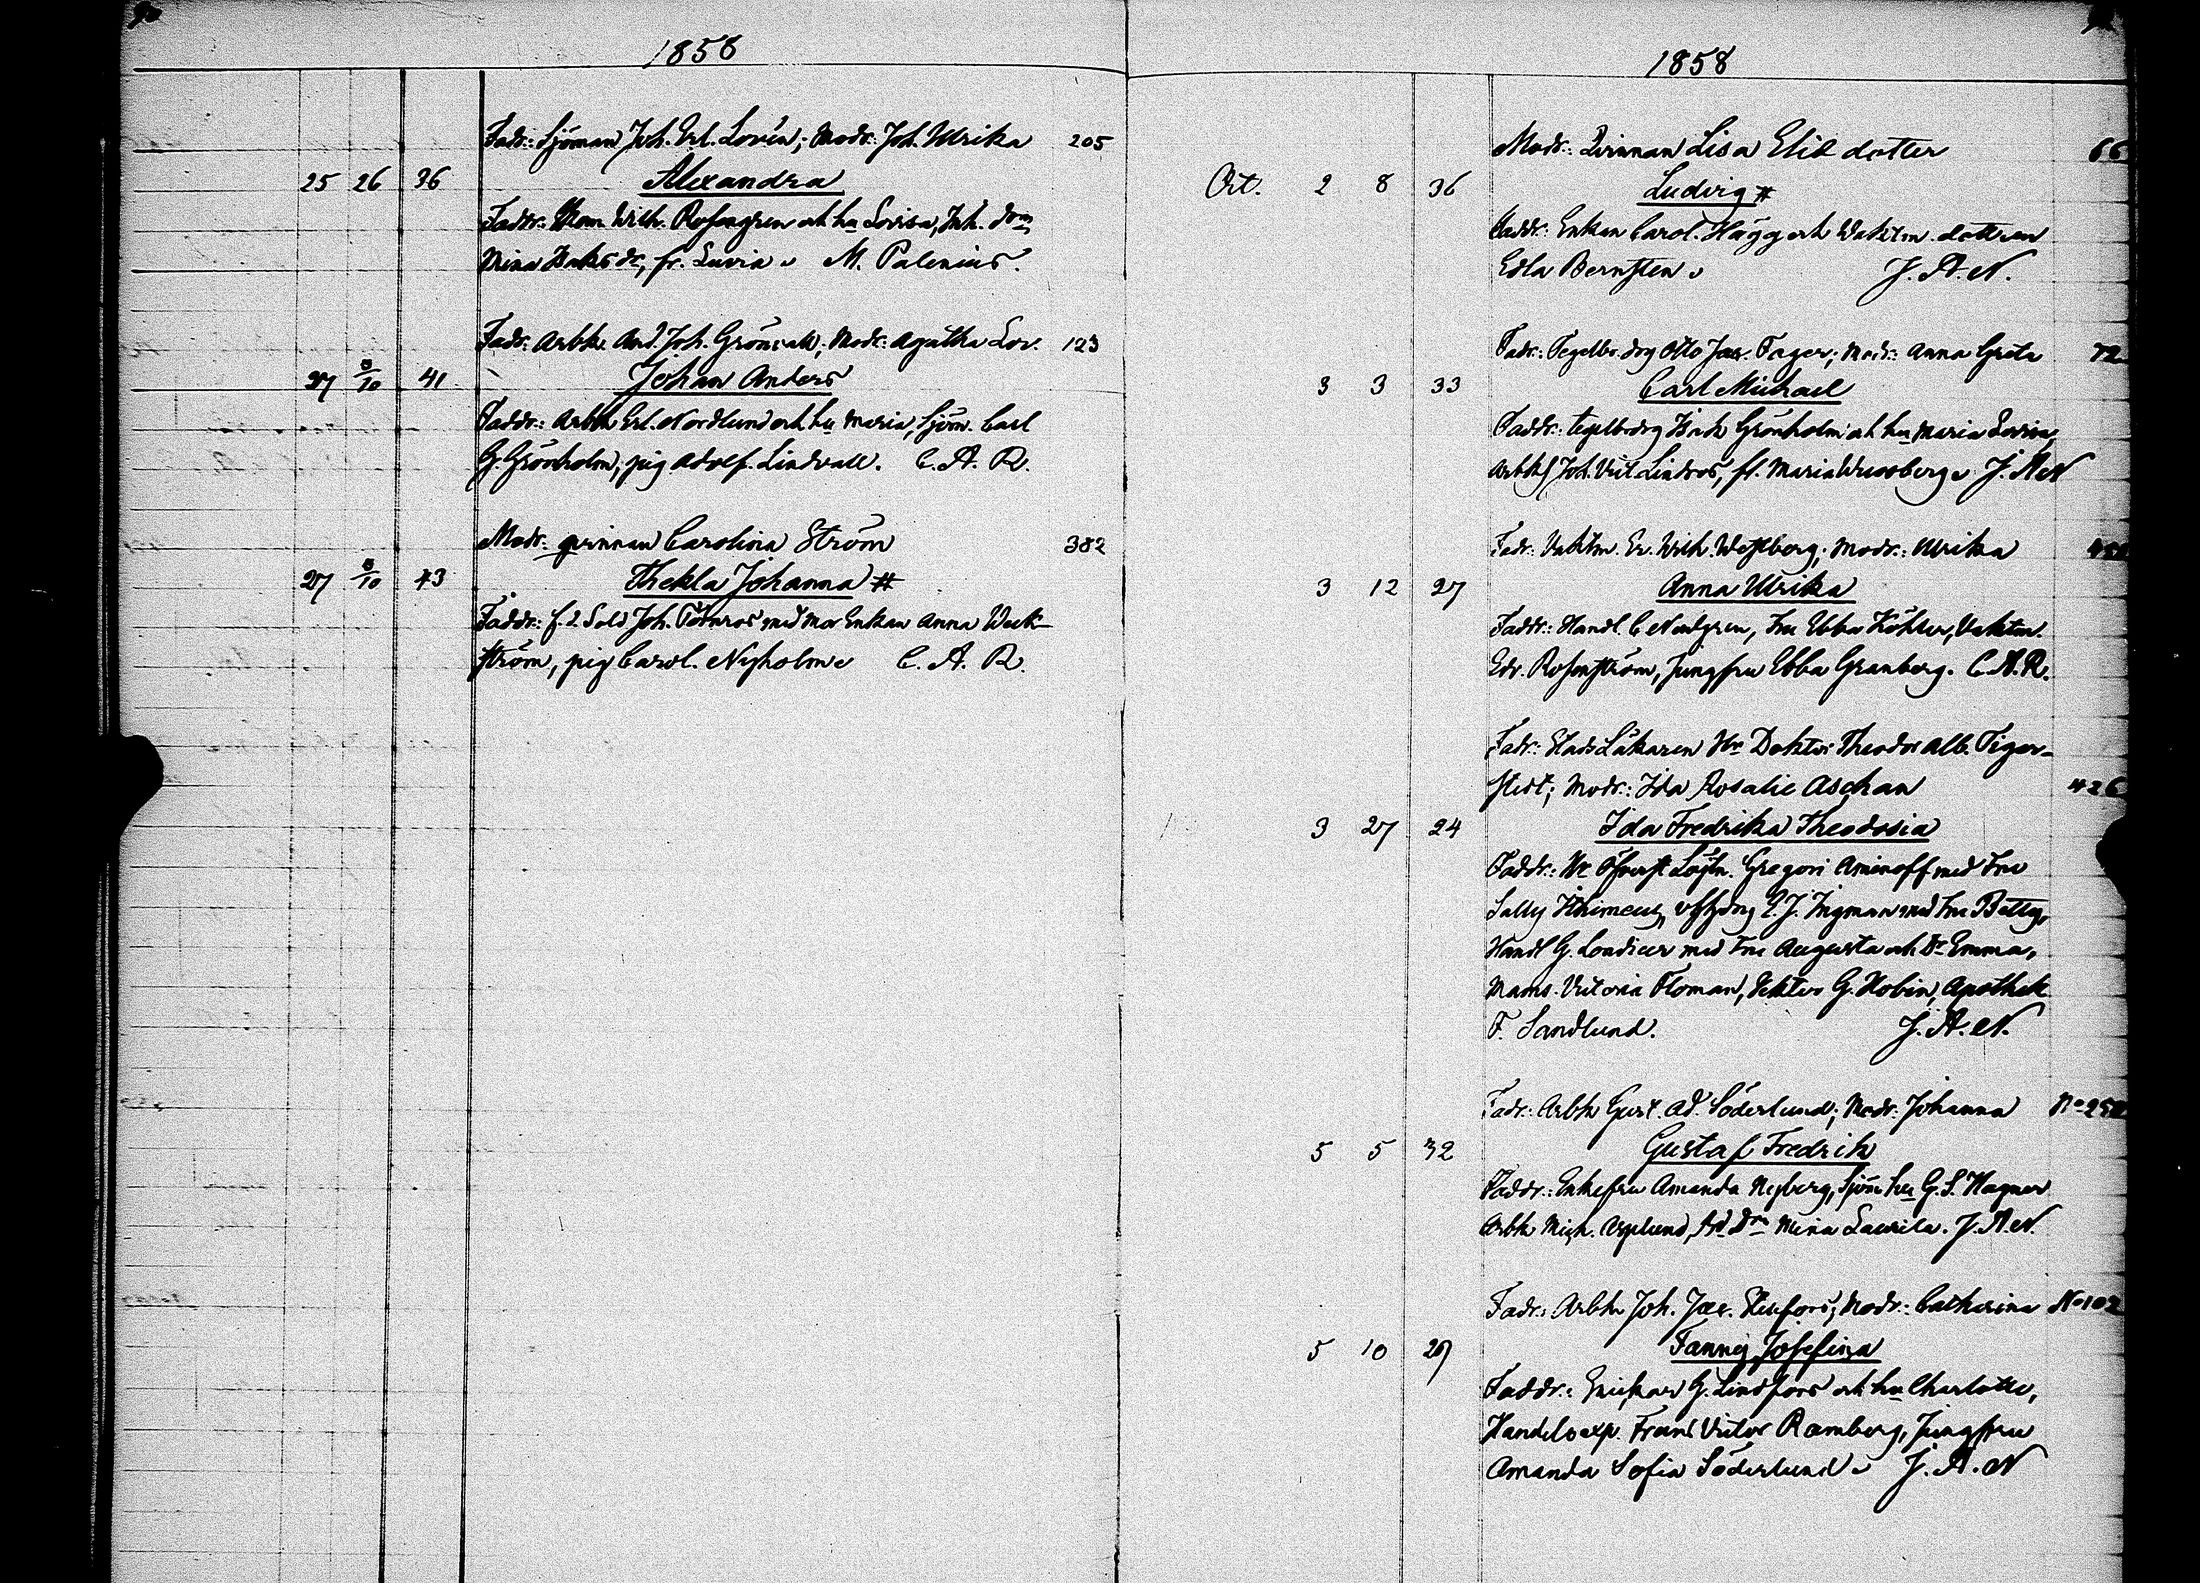 1858
Fadr: Sjöman Joh. Erl. Lovén; Modr: Joh. Ulrika 205
25 26 36 Alexandra
Faddr: Wilh. Rosengren och hu Lovisa, Joh. dr
Mina Isaksdr, fr. Luvia M. Palenius.
Fadr: Arbk. And. Joh. Grönvall; Modr: Agatha Lov. 123
27 3/10 41 Johan Anders
Faddr: Arbk Erl. Nordlund och hu Maria, Sjöm. Carl
G. Grönholm, pig Adolf. Lindvall. C. A. R.
Modr: qvinnan Carolina Ström 382
27 3/10 43 Thekla Johanna #
Faddr: f.d Sold Joh. Törnros med mor Enkan Anna Weck-
ström, pig Carol. Nyholm C. A. R.
1858
Modr: Qvinnan Lisa Elis dotter 66
Oct. 2 8 36 Ludvig #
Faddr: Enkan Carol. Hägg och Waktm. dottren
Edla Bernsten J. A. N.
Fadr: Tegelbr. drg Otto Jac. Fager; Modr: Anna Greta 72
3 3 33 Carl Michael
Faddr: tegelb.drg Isak Grönholm och hu Maria Lovisa,
Arbk Joh. Vict Lindros, fl. Maria Wussberg J. A N
Fadr: Vaktm. Er. Wilh. Wessberg; Modr: Ulrika
3 12 27 Anna Ulrika
Faddr: Handl. C Nordgren, Fru Ebba Köhler, Vaktm.
Edv. Rosenström, Jungfru Ebba Granberg. C. A. R.
Fadr: Stads Läkaren Hr Doktor Theodor Alb. Tiger-
stedt; Modr: Ida Rosalie Aschan 426
3 27 24 Ida Fredrika Theodosia
Faddr: Hr Öfverst Löjtn. Gregori Aminoff med Fru
Sally E. J. Ingman med Fru Betty,
Handl G. Londicer med Fru Augusta och Dr Emma,
Mams. Victoria Floman, Rektor G. Hobin, Apothek
F. Sandlund. J. A. N.
Fadr: Arbk Gust. Ad. Söderlund; Modr: Johanna
5 5 32 Gustaf Fredrik
Faddr: Enkefru Amanda Nyberg, Sjöm hu G. S. Hagner
Arbk Mich. Asplund, Mina Laurila. J. A. N.
Fadr: Arbk Joh. Jac. Stenfors; Modr: Catharina No 102
5 10 27 Fanny Josefina
Faddr: Snickar G. Lindfors och hu Charlotte,
Handelsexp. Frans Victor Ramberg, Jungfru
Amanda Sofia Söderlund J. A. N